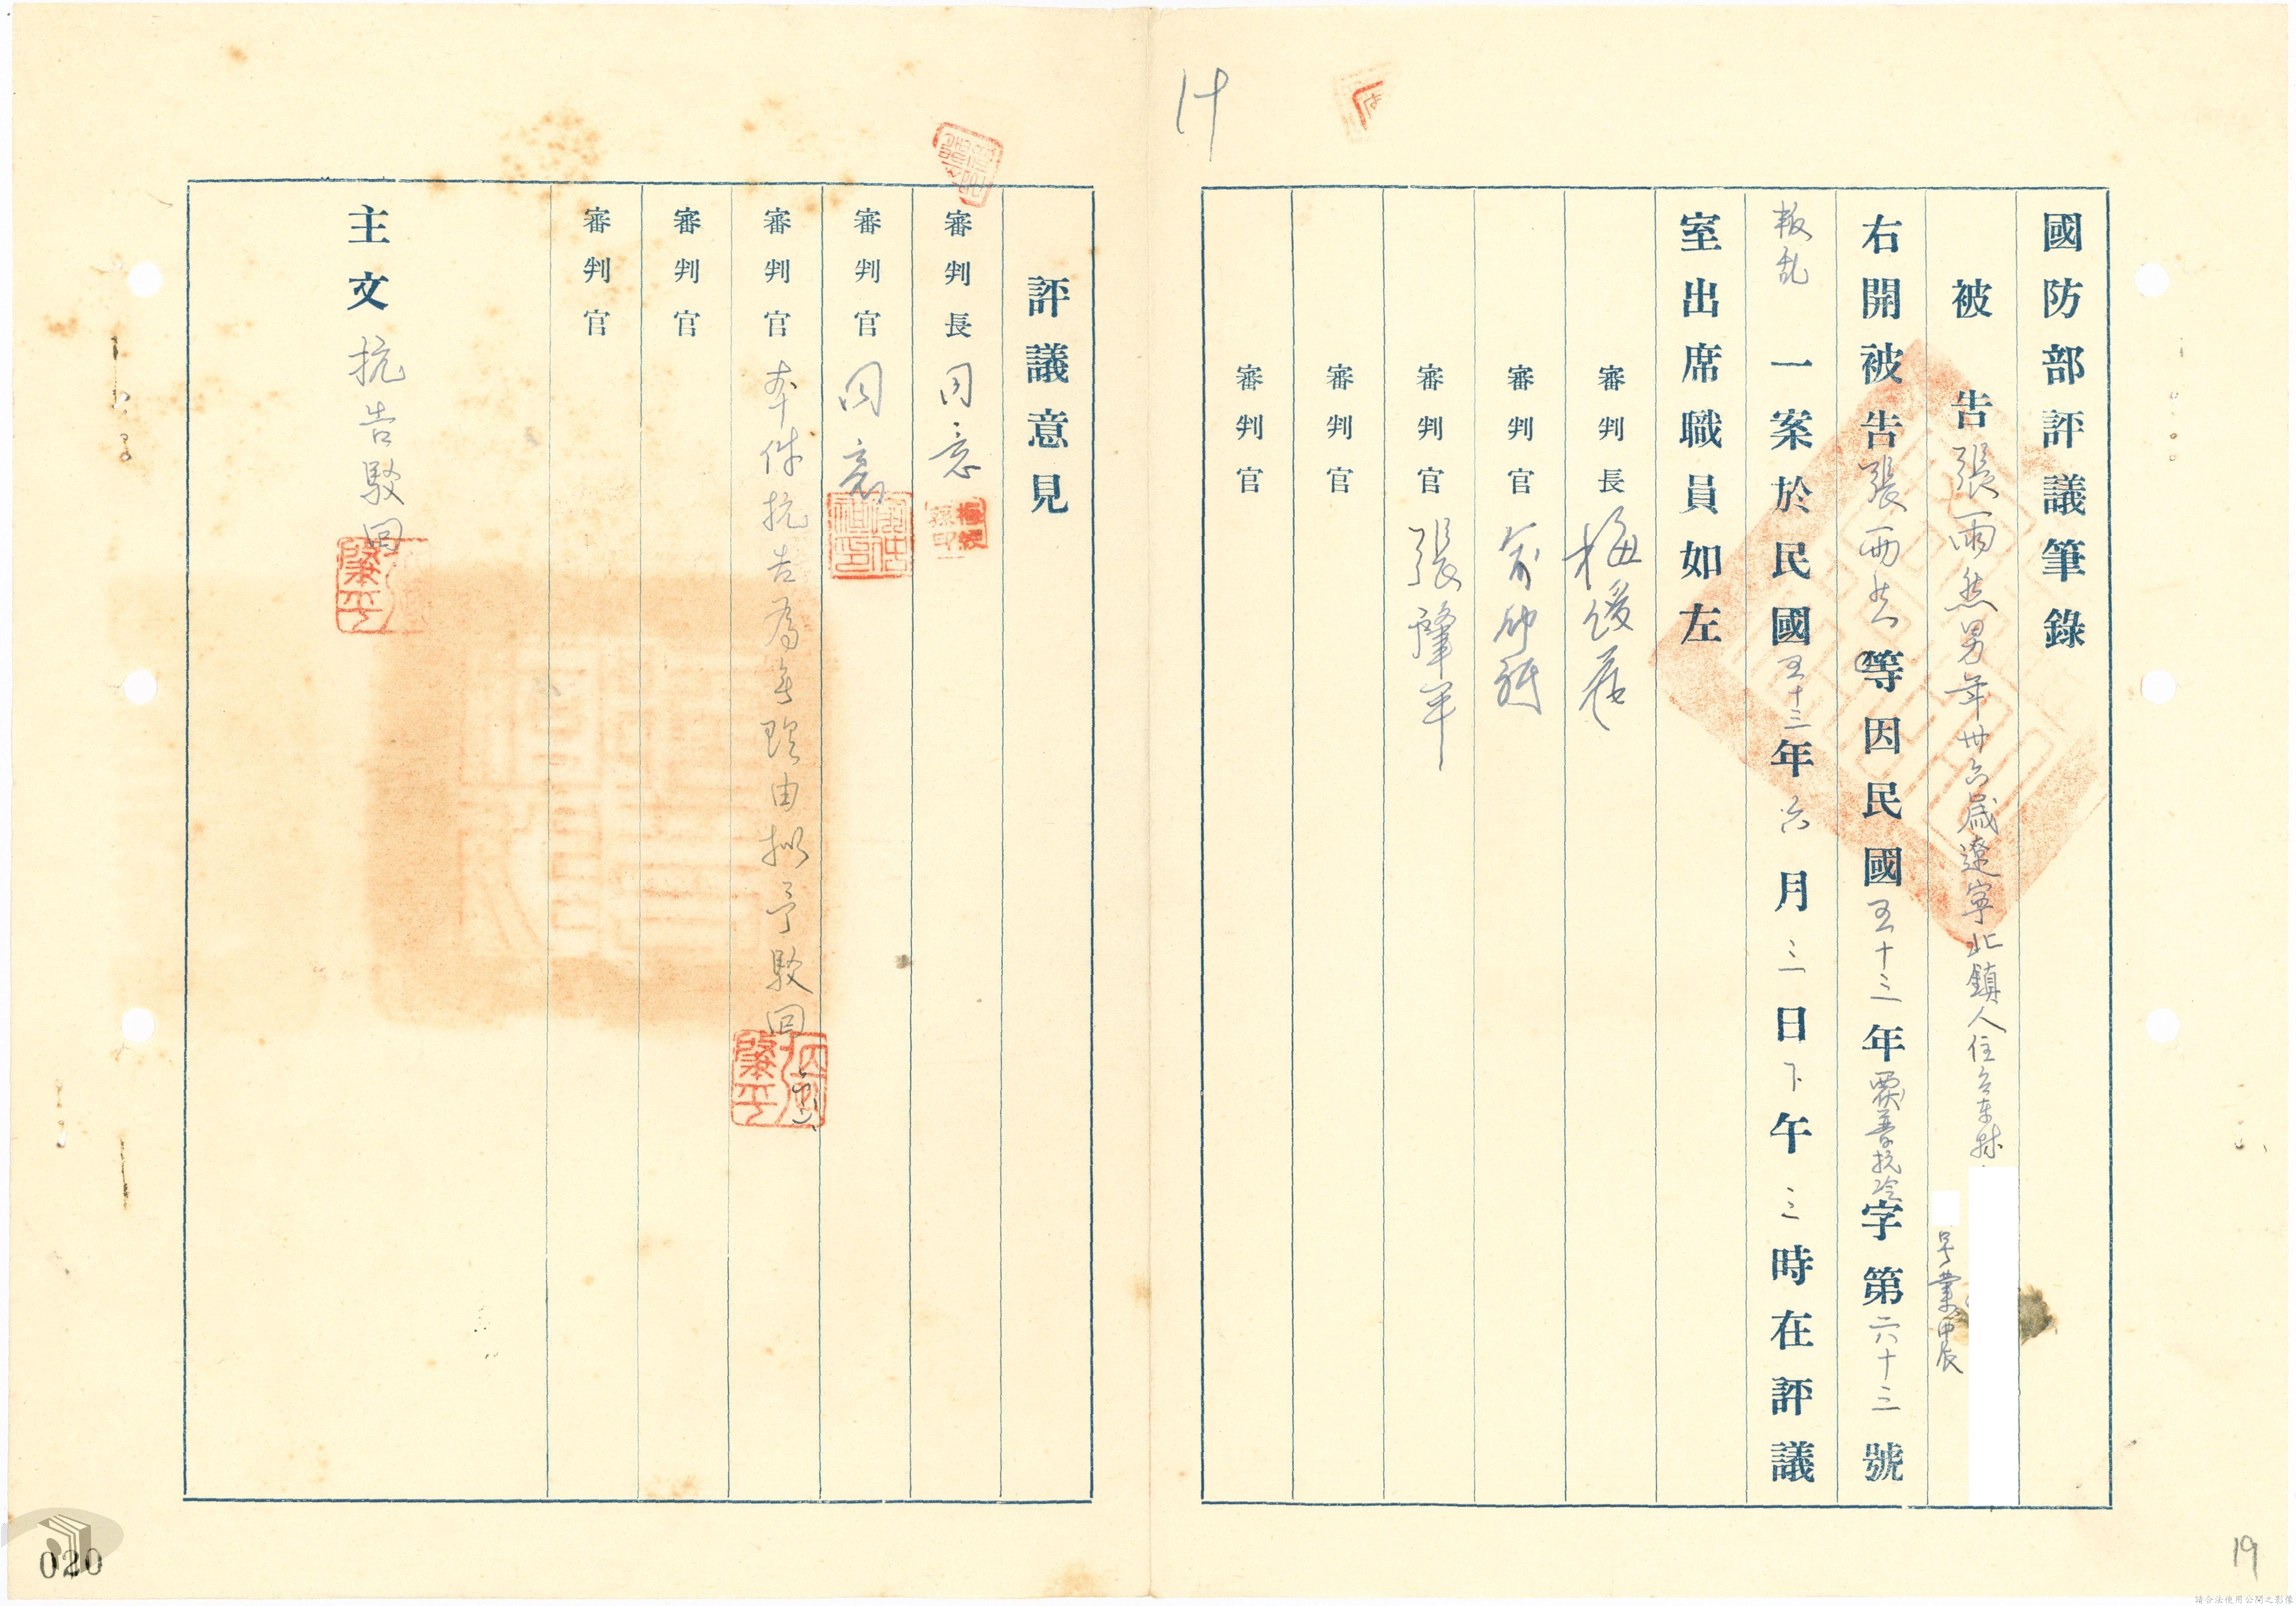 國防部評議筆錄
被告張雨然男年卅六歲遼寧北鎮人住台東
号業農
右開被告張雨然等因民國五十三年覆普抗字第六十三號
叛乱一案於民國五十三年六月三日下午三時在評議
室出席職員如左
審判長梅綬蓀
審判官俞仲
審判官張肇平
審判官
審判官
評議意見
審判長同意
審判官同意
審判官本件抗告為無理由拟予駁回
審判官
審判官
主文抗告駁回
020
19
請合法使用公開之影像